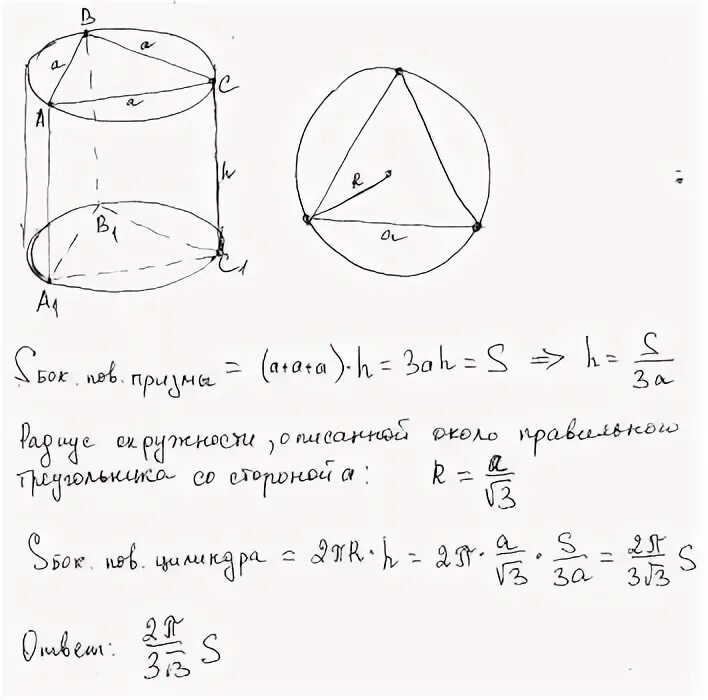 B
a
a
a
A
C
h
B₁
A₁
C₁
R
a
S бок. пов. призмы = (a+a+a)·h = 3ah = S ⇒ h = S/3a
Радиус окружности, описанной около правильного
треугольника со стороной a: R = a/√3
S бок. пов. цилиндра = 2πR·h = 2π·a/√3·S/3a = 2π/3√3 S
Ответ: 2π/3√3 S